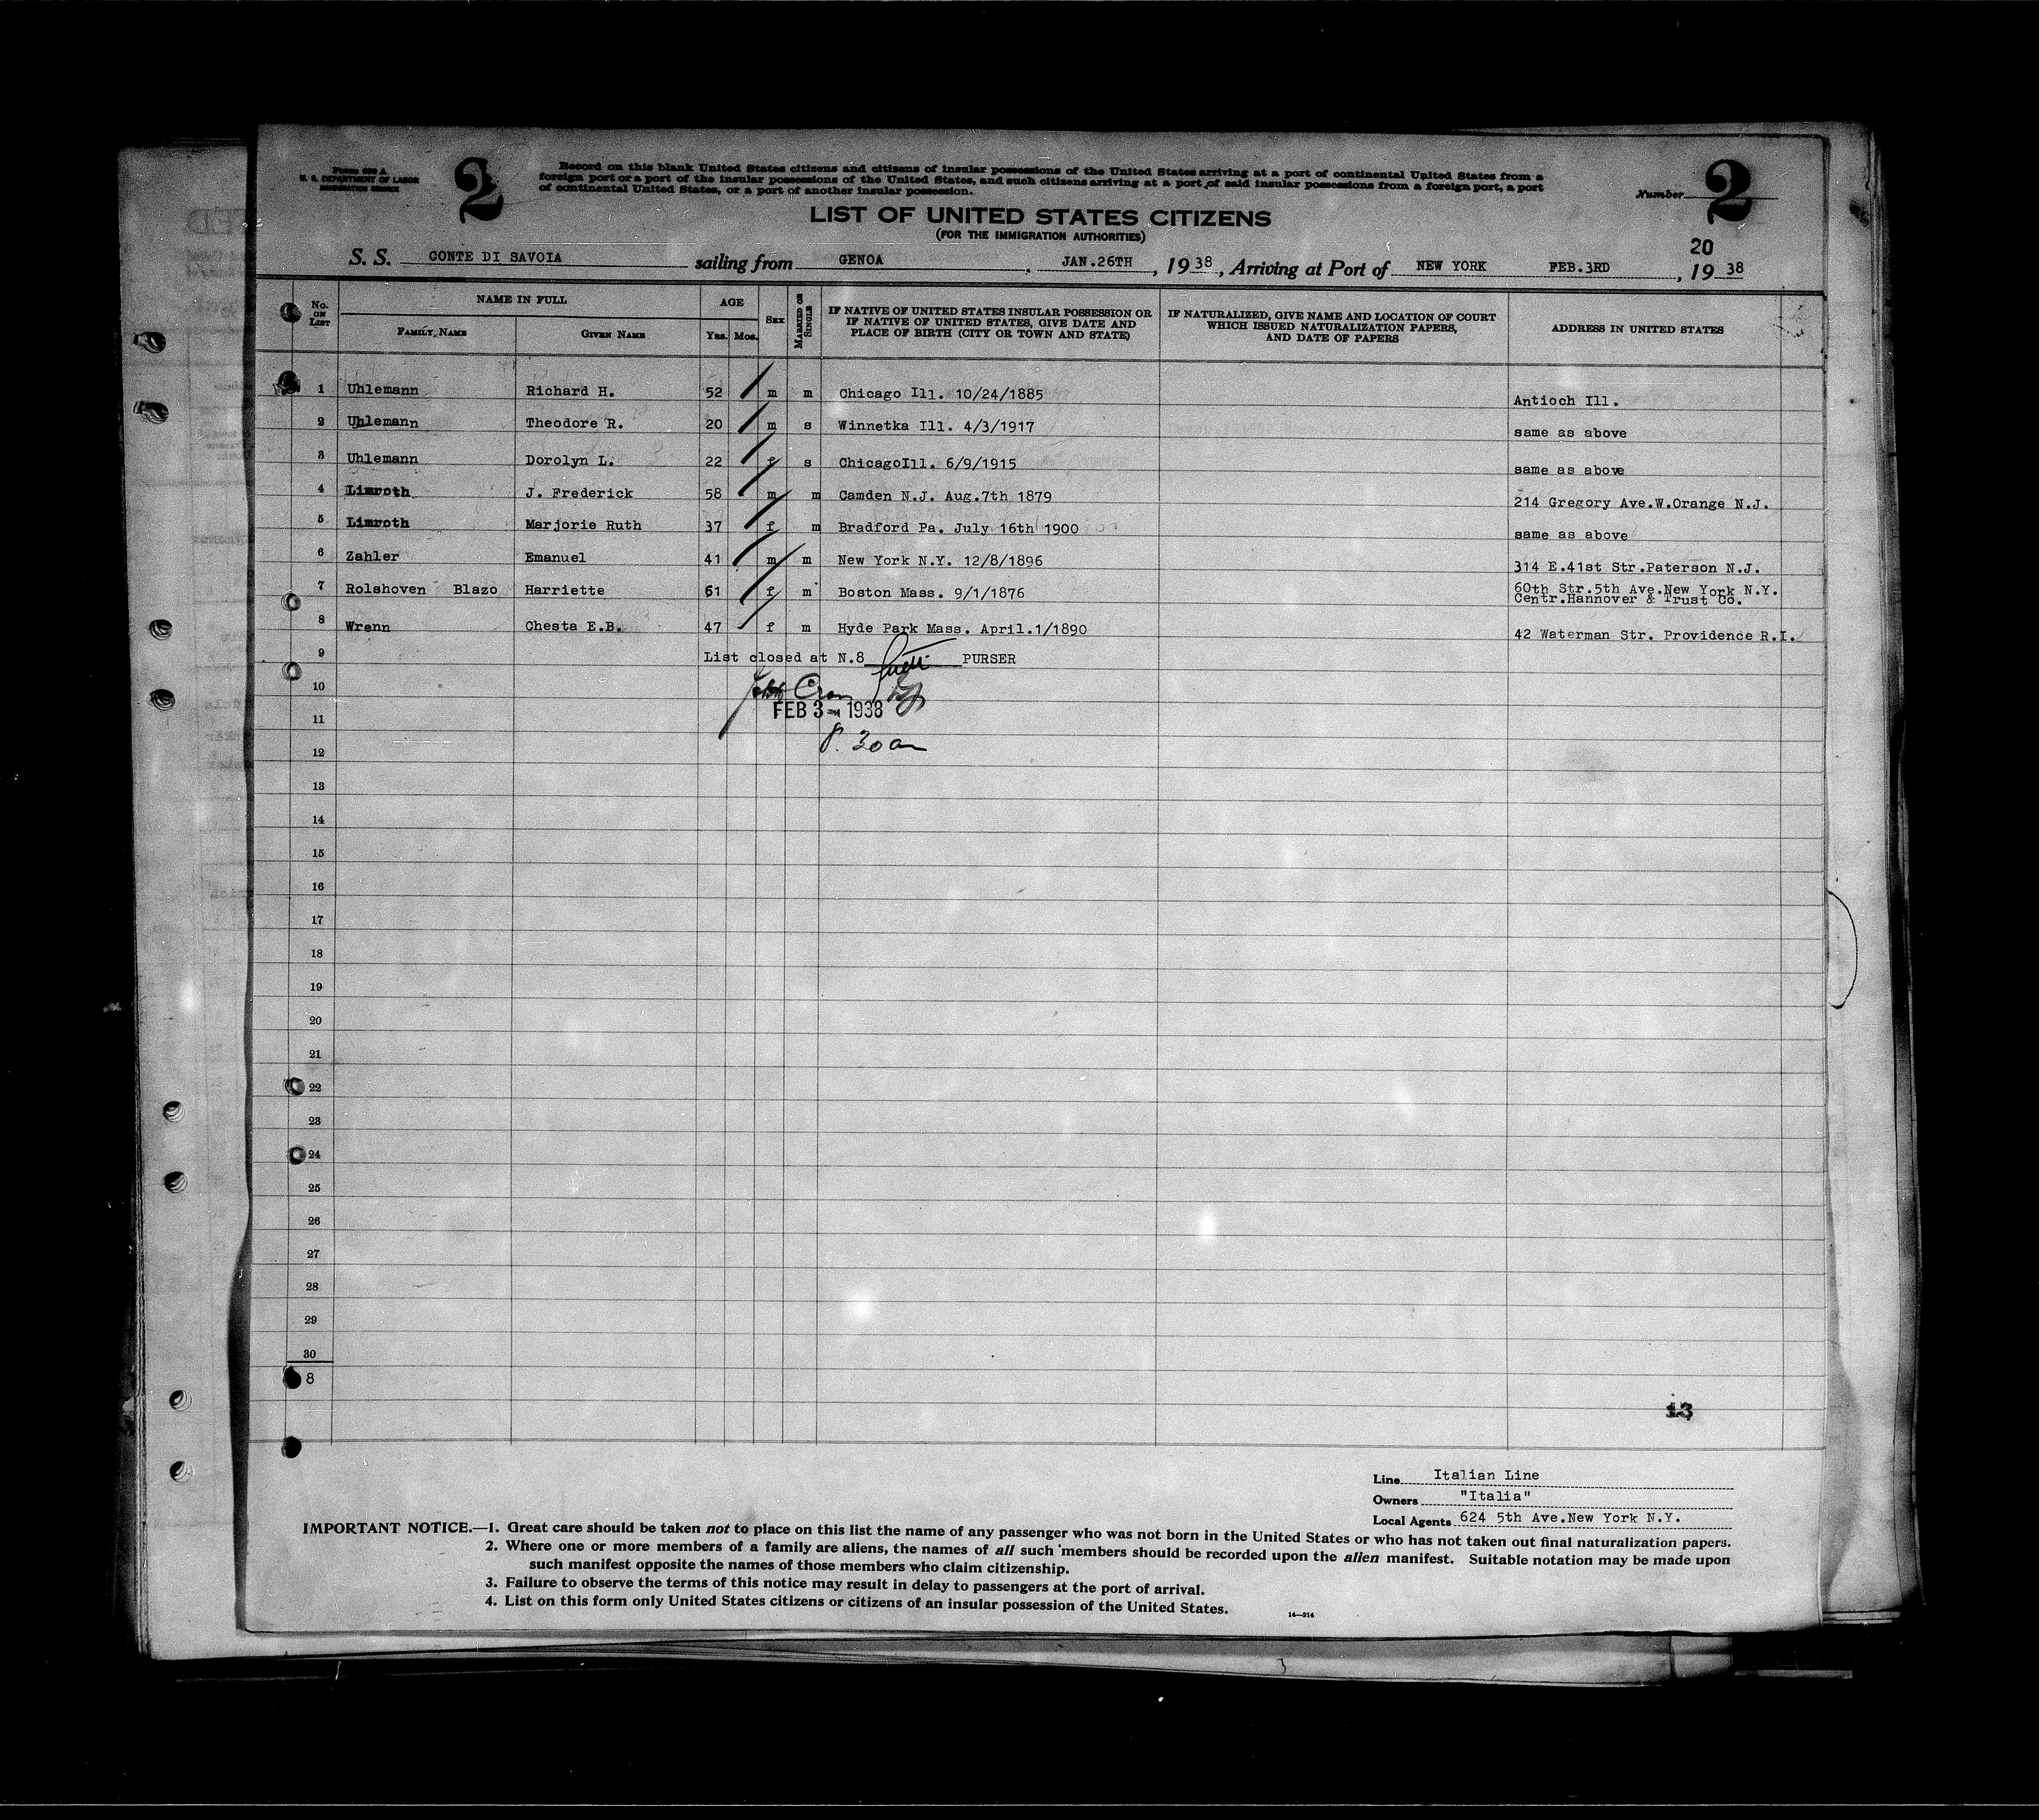 Form 630 A
U. S. DEPARTMENT OF LABOR
IMMIGRATION SERVICE
2
Record on this blank United States citizens and citizens of insular possessions of the United States arriving at a port of continental United States from a
foreign port or a port of the insular possessions of the United States, and such citizens arriving at a port of said insular possessions from a foreign port, a port
of continental United States, or a port of another insular possession.
Number 2
LIST OF UNITED STATES CITIZENS
(FOR THE IMMIGRATION AUTHORITIES)
20
S. S. CONTE DI SAVOIA sailing from GENOA, JAN.26TH, 1938, Arriving at Port of NEW YORK FEB.3RD, 1938
No. ON LIST
NAME IN FULL
FAMILY NAME GIVEN NAME
AGE
YRS. MOS.
SEX
MARRIED OR SINGLE
IF NATIVE OF UNITED STATES INSULAR POSSESSION OR
IF NATIVE OF UNITED STATES, GIVE DATE AND
PLACE OF BIRTH (CITY OR TOWN AND STATE)
IF NATURALIZED, GIVE NAME AND LOCATION OF COURT
WHICH ISSUED NATURALIZATION PAPERS,
AND DATE OF PAPERS
ADDRESS IN UNITED STATES
1 Uhlemann Richard H. 52 m m Chicago Ill. 10/24/1885 Antioch Ill.
2 Uhlemann Theodore R. 20 m s Winnetka Ill. 4/3/1917 same as above
3 Uhlemann Dorolyn L. 22 f s ChicagoIll. 6/9/1915 same as above
4 Limroth J. Frederick 58 m m Camden N.J. Aug.7th 1879 214 Gregory Ave.W.Orange N.J.
5 Limroth Marjorie Ruth 37 f m Bradford Pa. July 16th 1900 same as above
6 Zahler Emanuel 41 m m New York N.Y. 12/8/1896 314 E.41st Str.Paterson N.J.
7 Rolshoven Blazo Harriette 61 f m Boston Mass. 9/1/1876 60th Str.5th Ave.New York N.Y.
Centr.Hannover & Trust Co.
8 Wrenn Chesta E.B. 47 f m Hyde Park Mass. April.1/1890 42 Waterman Str. Providence R.I.
9 List closed at N.8 PURSER
10
11 FEB 3 - 1938
12 8.30 am
13
14
15
16
17
18
19
20
21
22
23
24
25
26
27
28
29
30
8
13
Line Italian Line
Owners "Italia"
Local Agents 624 5th Ave.New York N.Y.
IMPORTANT NOTICE.—1. Great care should be taken not to place on this list the name of any passenger who was not born in the United States or who has not taken out final naturalization papers.
2. Where one or more members of a family are aliens, the names of all such members should be recorded upon the alien manifest. Suitable notation may be made upon
such manifest opposite the names of those members who claim citizenship.
3. Failure to observe the terms of this notice may result in delay to passengers at the port of arrival.
4. List on this form only United States citizens or citizens of an insular possession of the United States.
14—214